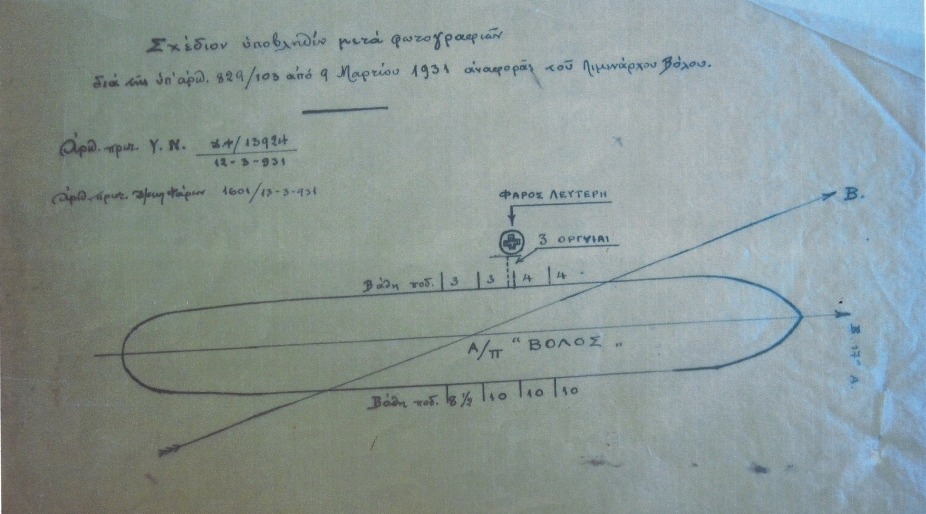 Σχέδιον ὑποβληθέν μετά φωτογραφιῶν
διά τῆς ὑπ' ἀριθ. 829/103 ἀπό 9 Μαρτίου 1931 ἀναφορᾶς τοῦ Λιμενάρχου Βόλου.
Ἀριθ. πρωτ. Υ. Ν. /13924
12-3-931
Ἀριθ. πρωτ. Φάρων 1601/13-3-931
ΦΑΡΟΣ ΛΕΥΤΕΡΗ
3 ΟΡΓΥΙΑΙ
Β.
Βάθη ποδ. 3 3 4 4
Α/Π "ΒΟΛΟΣ„
Β 17° Α
Βάθη ποδ. 8 ½ 10 10 10